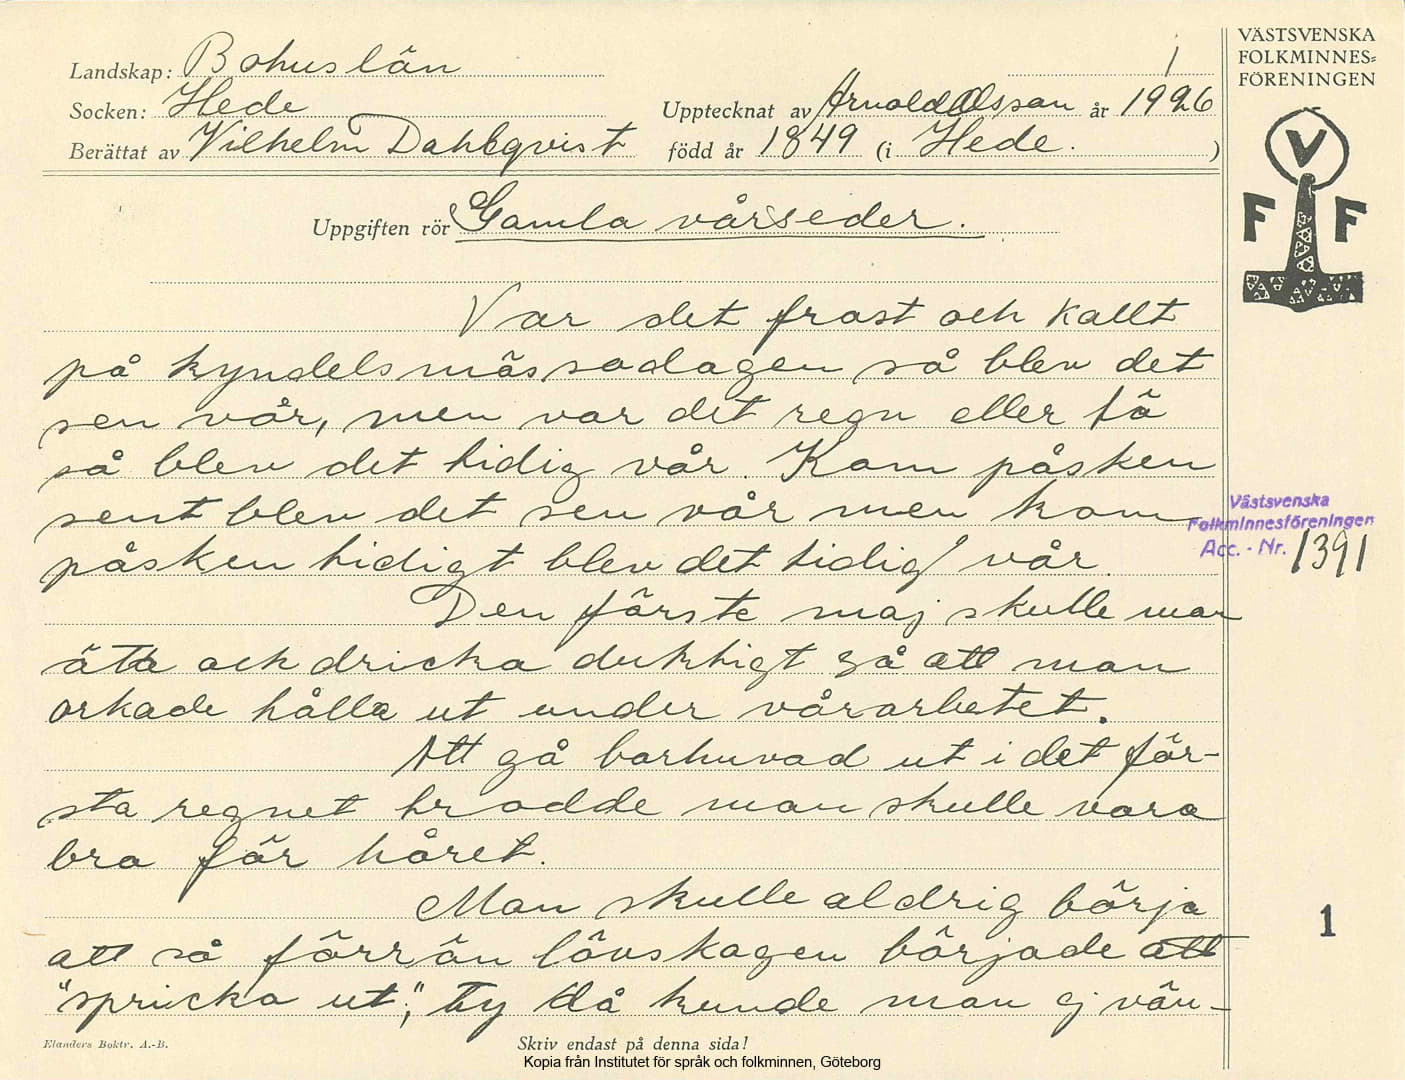 Landskap: Bohuslän
1
Socken: Hede
Upptecknat av Arnold Olsson år 1926
Berättat av Vilhelm Dahlqvist född år 1849 (i Hede. )
VÄSTSVENSKA
FOLKMINNES=
FÖRENINGEN
V
F F
Uppgiften rör Gamla vårseder.
Var det frost och kallt
på kyndelsmässodagen så blev det
sen vår, men var det regn eller tö
så blev det tidig vår. Kom påsken
sent blev det sen vår men kom
påsken tidigt blev det tidig vår.
Västsvenska
Folkminnesföreningen
Acc. - Nr. 1391
Den förste maj skulle man
äta och dricka duktigt så att man
orkade hålla ut under vårarbetet.
Att gå barhuvad ut i det för-
sta regnet trodde man skulle vara
bra för håret.
Man skulle aldrig börja
att så förrän lövskogen började att
"spricka ut", ty då kunde man ej vän-
1
Elanders Boktr. A.-B.
Skriv endast på denna sida!
Kopia från Institutet för språk och folkminnen, Göteborg